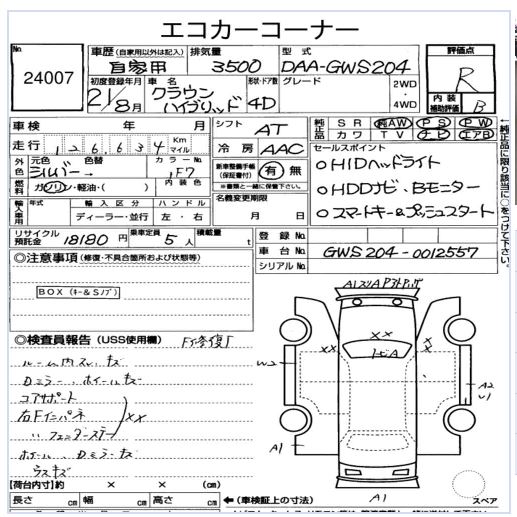 エコカーコーナー
No. 24007
車歴 (自家用以外は記入) 自家用
排気量 3500
型式 DAA-GWS204
評価点 R
内装補助評価 B
初度登録年月 21/8月
車名 クラウン ハイブリッド
形状・ドア数 4D
グレード
2WD・4WD
車検 年 月
シフト AT
純正品 SR 純AW PS PW
カワ TV ナビ エアB
走行 126,634 Km マイル
冷房 AAC
セールスポイント
○HIDヘッドライト
○HDDナビ、Bモニター
○スマートキー&プッシュスタート
外色 元色 色替 シルバー
カラーNo. 1F7
燃料 ガソリン・軽油・( )
内装色
新車整備手帳 (保証書付) 有 無
※書類と一緒に保管下さい。
名義変更期限 月 日
輸入車用 年式 輸入区分 ハンドル
ディーラー・並行 左・右
リサイクル預託金 18180円
乗車定員 5人
積載量 t
登録No.
車台No. GWS204-0012557
シリアルNo.
←純正品に限り該当に○をつけて下さい。
◎注意事項 (修復・不具合箇所および状態等)
BOX(キー&Sノブ)
◎検査員報告 (USS使用欄)
ルーム内スレ、キズ
Dミラー、ホイールキズ
コアサポート
右Fインパネ
〃フェンダーステー
XX
ホイール、Dミラーキズ
ウスキズ
A1
XX
XX
XX
W2
A2
U1
A1
A1
【荷台内寸】約 × × (cm)
長さ cm 幅 cm 高さ cm
←(車検証上の寸法)
スペア